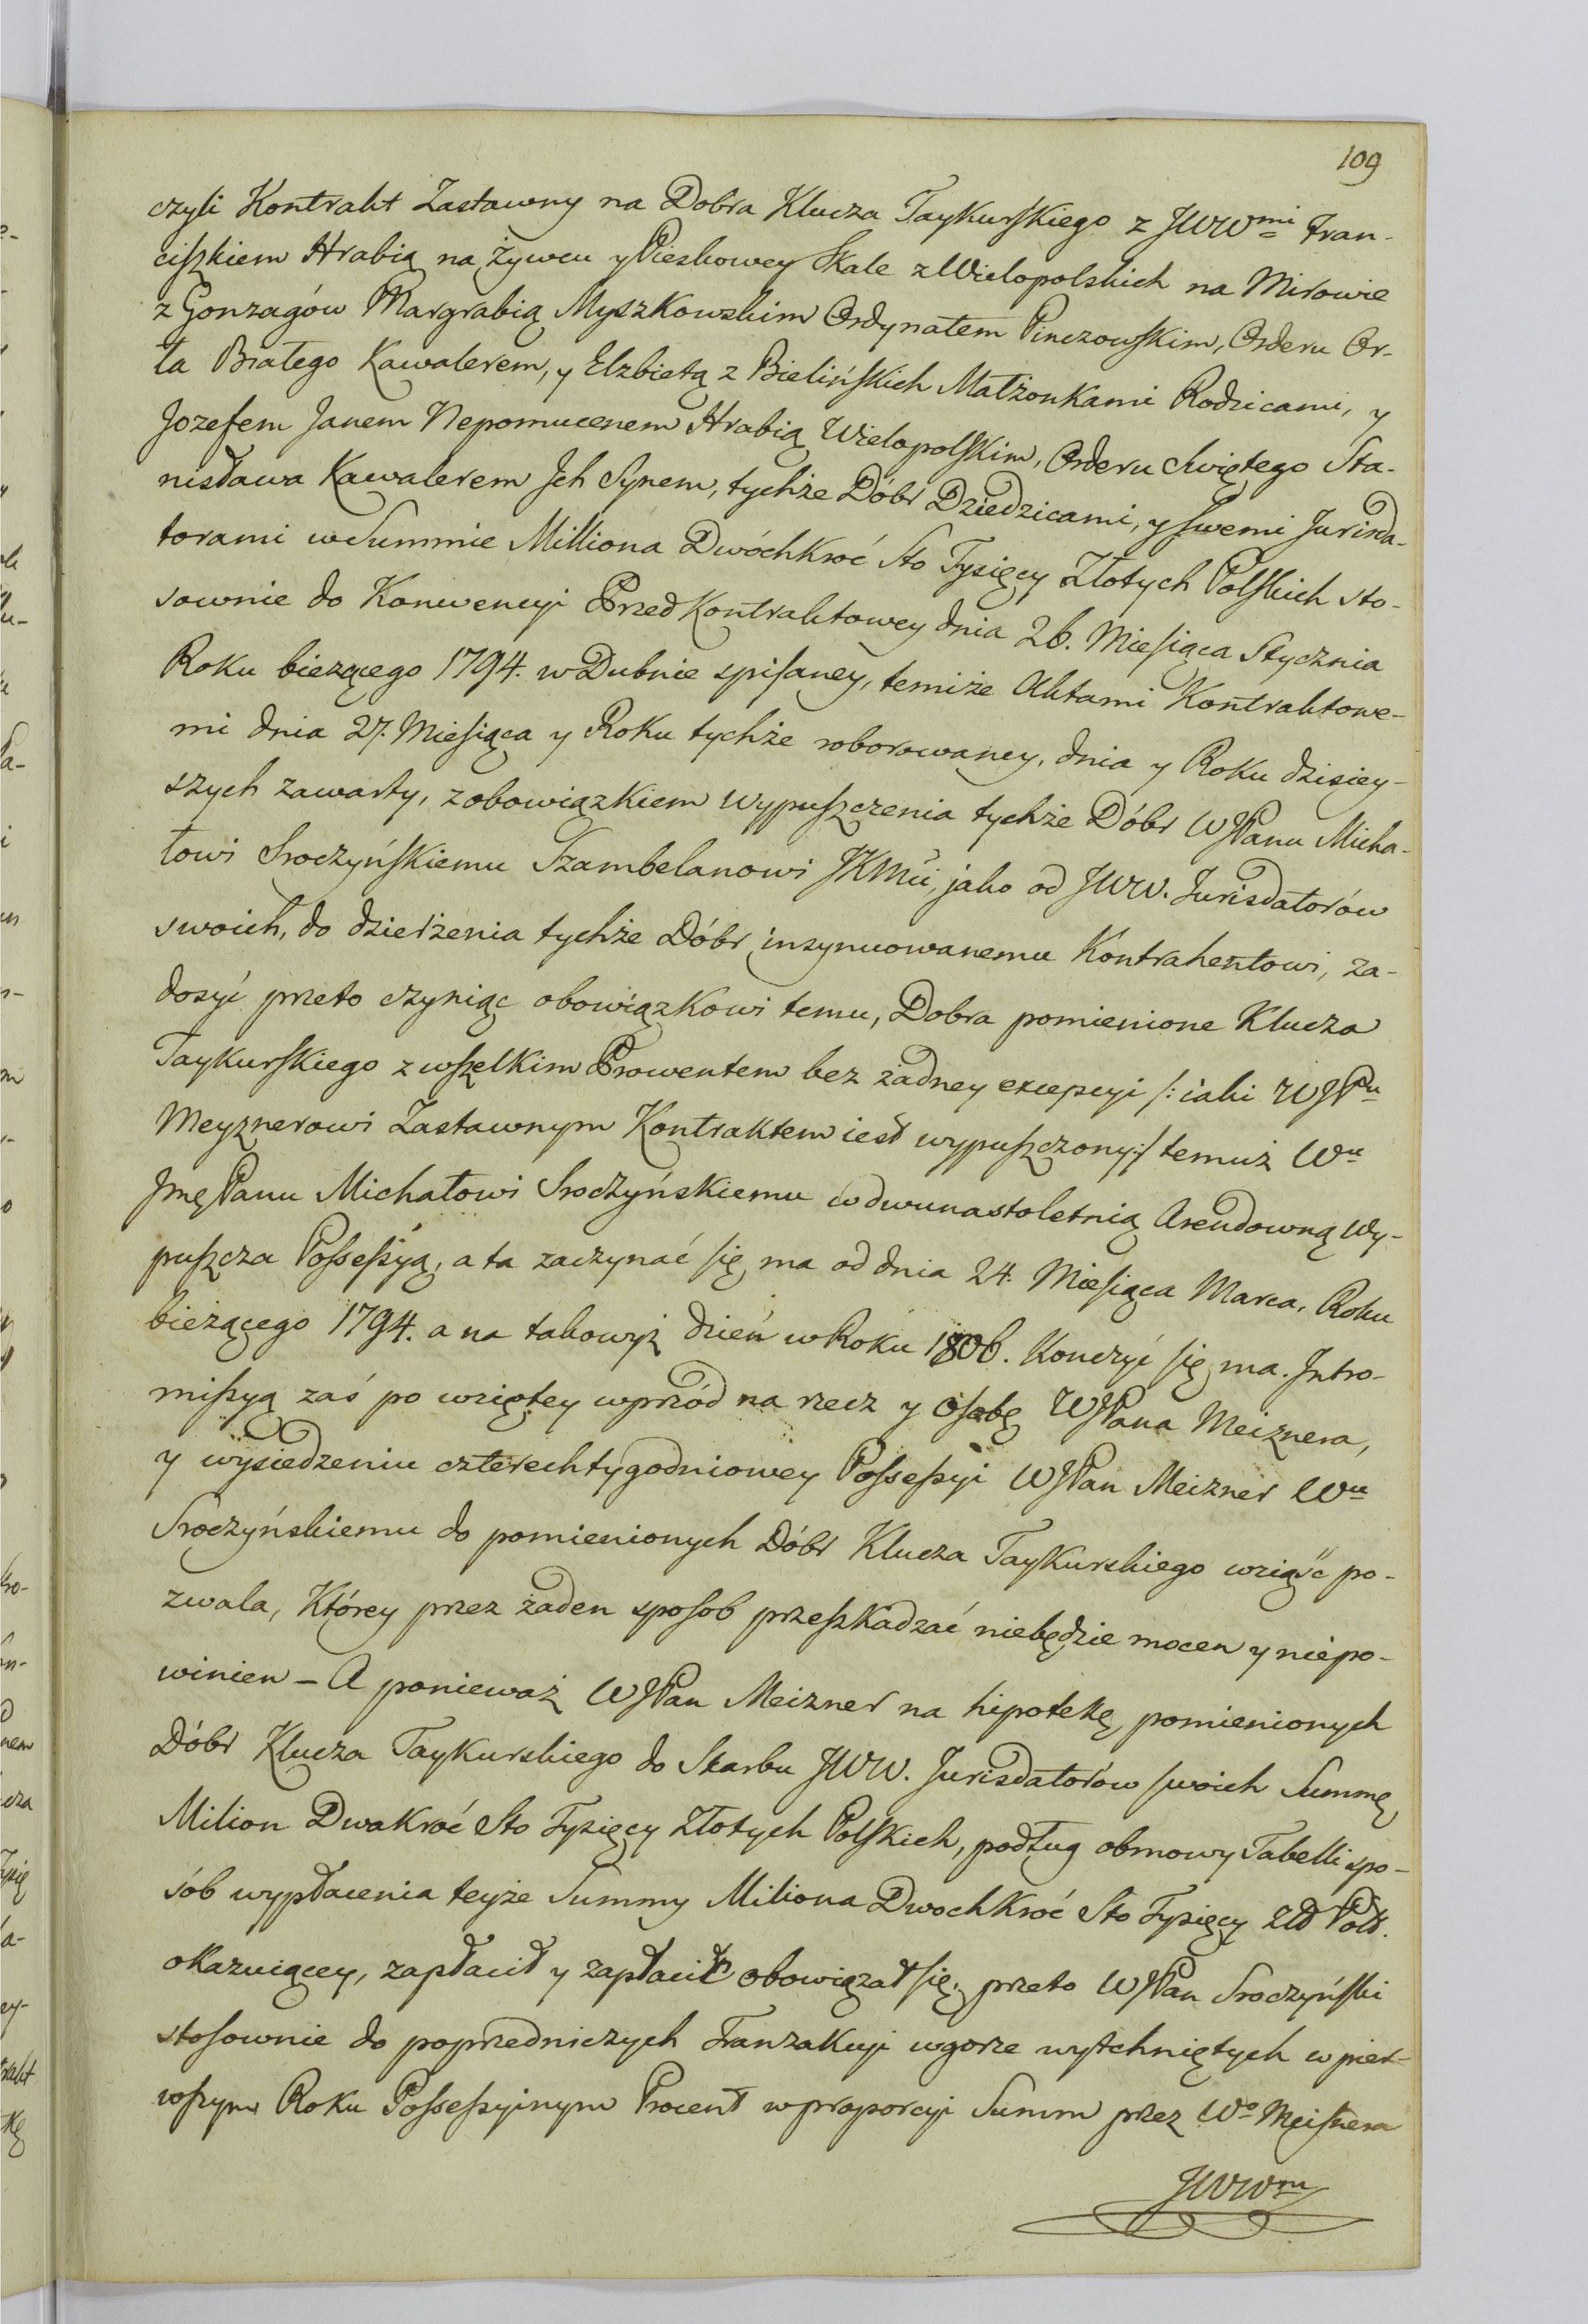 109
czyli Kontrakt Zastawny na Dobra Klucza Taykurskiego z JWWmi Fran-
ciszkiem Hrabią na Żywcu y Pieskowey Skale z Wielopolskich na Mirowie
z Gonzagów Margrabią Myszkowskim Ordynatem Pinczowskim, Orderu Or-
ła Białego Kawalerem, y Elzbietą z Bielińskich Małżonkami Rodzicami, y
Jozefem Janem Nepomucenem Hrabią Wielopolskim, Orderu Swiętego Sta-
nisława Kawalerem Jch Synem, tychże Dóbr Dziedzicami, y swemi Jurisda-
torami w Summie Milliona Dwóchkroć Sto Tysięcy Złotych Polskich sto-
sownie do Konwencyi Przed Kontraktowey dnia 26. Miesiąca Stycznia
Roku bieżącego 1794. w Dubnie spisaney, temiże Aktami Kontraktowe-
mi dnia 27. Miesiąca y Roku tychże roborowaney, dnia y Roku dzisiey-
szych zawarty, z obowiązkiem wypuszczenia tychże Dóbr WJPanu Micha-
łowi Sroczyńskiemu Szambelanowi JKMci, jako od JWW. Jurisdatorów
swoich, do dzierżenia tychże Dóbr insynuowanemu Kontrahentowi, za-
dosyć przeto czyniąc obowiązkowi temu, Dobra pomienione Klucza
Taykurskiego z wszelkim Prowentem bez żadney excepcyi /: iaki WJPu
Meyznerowi Zastawnym Kontraktem iest wypuszczony :/ temuż Wu
JmęPanu Michałowi Sroczyńskiemu w dwunastoletnią Arendowną wy-
puszcza Possessyą, a ta zaczynać się ma od dnia 24. Miesiąca Marca, Roku
bieżącego 1794. a na takowyż dzień w Roku 1806. Konczyć się ma. Intro-
missyą zaś po wziętey wprzód na rzecz y osobę WJPana Meiznera,
y wysiedzeniu czterechtygodniowey Possessyi WJPan Meizner Wu
Sroczyńskiemu do pomienionych Dóbr Klucza Taykurskiego wziąść po-
zwala, Którey przez żaden sposob przeszkadzać niebędzie mocen y niepo-
winien – A ponieważ WJPan Meizner na hipotekę pomienionych
Dóbr Klucza Taykurskiego do Skarbu JWW. Jurisdatorów swoich Summę
Milion Dwakroć Sto Tysięcy Złotych Polskich, podług obmowy Tabelli spo-
sób wypłacenia teyże Summy Miliona Dwochkroć Sto Tysięcy Zło Pols.
okazuiącey, zapłacił y zapłacić obowiązał się, przeto WJPan Sroczyński
stosownie do poprzedniczych Tranzakcyi wgorze wytchniętych w pier-
wszym Roku Possessyinym Procent w proporcyi Summ przez Wo Meisnera
JWWm